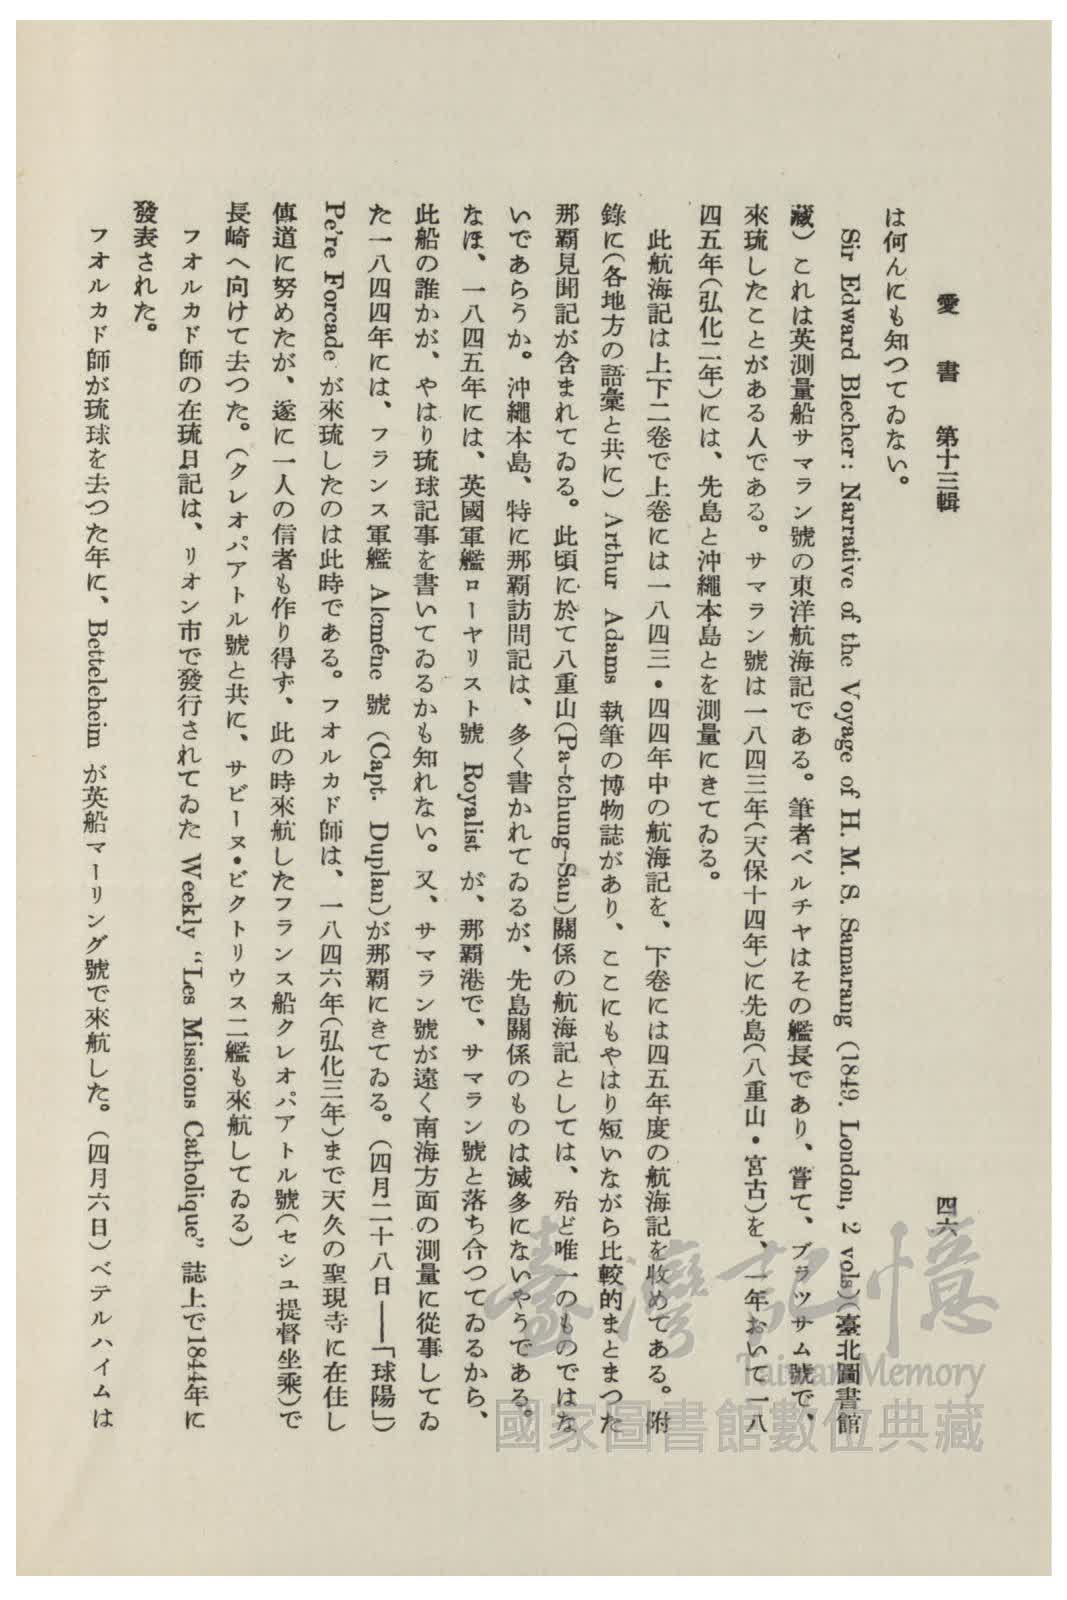 愛書 第十三輯
四六
は何んにも知つてゐない。
Sir Edward Blecher: Narrative of the Voyage of H. M. S. Samarang (1849. London, 2 vols)(臺北圖書館
藏) これは英測量船サマラン號の東洋航海記である。筆者ベルチヤはその艦長であり、嘗て、ブラツサム號で、
來琉したことがある人である。サマラン號は一八四三年(天保十四年)に先島(八重山・宮古)を、一年おいて一八
四五年(弘化二年)には、先島と沖繩本島とを測量にきてゐる。
此航海記は上下二卷で上卷には一八四三・四四年中の航海記を、下卷には四五年度の航海記を收めてある。附
錄に(各地方の語彙と共に) Arthur Adams 執筆の博物誌があり、ここにもやはり短いながら比較的まとまつた
那覇見聞記が含まれてゐる。此頃に於て八重山(Pa-tchung-San)關係の航海記としては、殆ど唯一のものではな
いであらうか。沖繩本島、特に那覇訪問記は、多く書かれてゐるが、先島關係のものは滅多にないやうである。
なほ、一八四五年には、英國軍艦ローヤリスト號 Royalist が、那覇港で、サマラン號と落ち合つてゐるから、
此船の誰かが、やはり琉球記事を書いてゐるかも知れない。又、サマラン號が遠く南海方面の測量に從事してゐ
た一八四四年には、フランス軍艦 Alcméne 號 (Capt. Duplan)が那覇にきてゐる。(四月二十八日――「球陽」)
Pe're Forcade が來琉したのは此時である。フオルカド師は、一八四六年(弘化三年)まで天久の聖現寺に在住し
傳道に努めたが、遂に一人の信者も作り得ず、此の時來航したフランス船クレオパアトル號(セシユ提督坐乘)で
長崎へ向けて去つた。(クレオパアトル號と共に、サビーヌ・ビクトリウス二艦も來航してゐる)
フオルカド師の在琉日記は、リオン市で發行されてゐた Weekly “Les Missions Catholique” 誌上で1844年に
發表された。
フオルカド師が琉球を去つた年に、Betteleheim が英船マーリング號で來航した。(四月六日)ベテルハイムは
臺灣記憶
Taiwan Memory
國家圖書館數位典藏